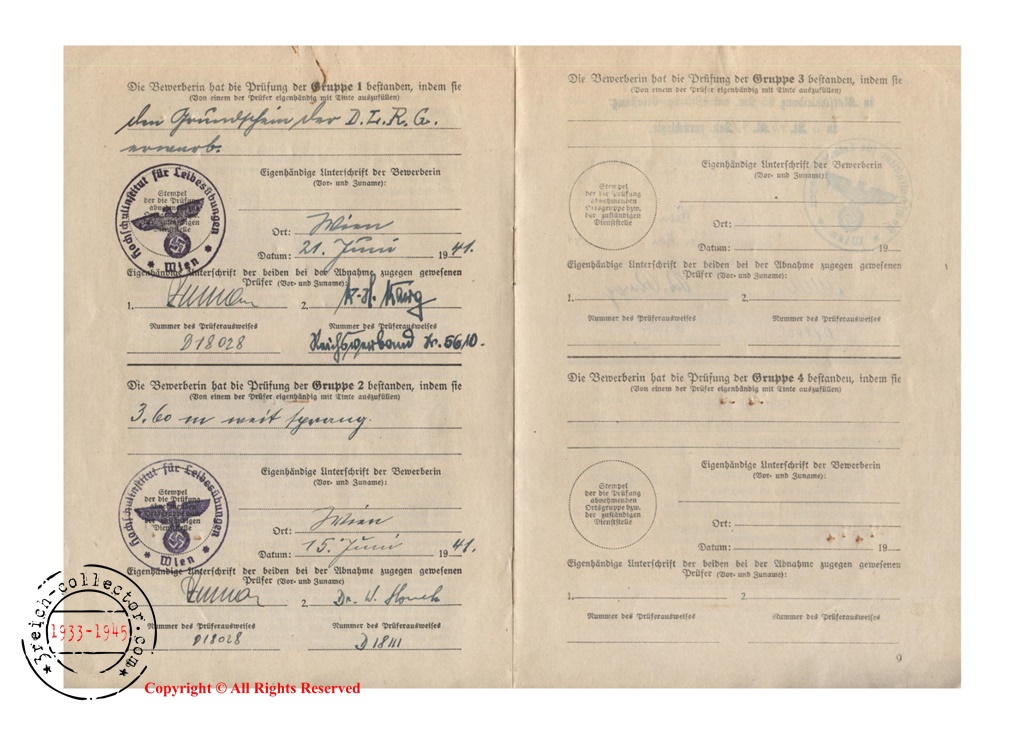 Die Bewerberin hat die Prüfung der Gruppe 1 bestanden, indem sie
(Von einem der Prüfer eigenhändig mit Tinte auszufüllen)
den Grundschein der D.L.R.G.
erwarb.
Hochschulinstitut für Leibesübungen
* Wien *
Stempel
der die Prüfung
abnehmenden
Ortsgruppe bzw.
der zuständigen
Dienststelle
Eigenhändige Unterschrift der Bewerberin
(Vor- und Zuname):
Ort: Wien
Datum: 21. Juni 1941.
Eigenhändige Unterschrift der beiden bei der Abnahme zugegen gewesenen
Prüfer (Vor- und Zuname):
1. 2.
Nummer des Prüferausweises Nummer des Prüferausweises
D18028 Reichsverband Nr. 5610.
Die Bewerberin hat die Prüfung der Gruppe 2 bestanden, indem sie
(Von einem der Prüfer eigenhändig mit Tinte auszufüllen)
3.60 m weit sprang.
Hochschulinstitut für Leibesübungen
* Wien *
Stempel
der die Prüfung
abnehmenden
Ortsgruppe bzw.
der zuständigen
Dienststelle
Eigenhändige Unterschrift der Bewerberin
(Vor- und Zuname):
Ort: Wien
Datum: 15. Juni 1941.
Eigenhändige Unterschrift der beiden bei der Abnahme zugegen gewesenen
Prüfer (Vor- und Zuname)
2. Dr. W.
Nummer des Prüferausweises Nummer des Prüferausweises
D18028 D18111
Die Bewerberin hat die Prüfung der Gruppe 3 bestanden, indem sie
(Von einem der Prüfer eigenhändig mit Tinte auszufüllen)
Stempel
der die Prüfung
abnehmenden
Ortsgruppe bzw.
der zuständigen
Dienststelle
Eigenhändige Unterschrift der Bewerberin
(Vor- und Zuname):
Ort:
Datum: 19
Eigenhändige Unterschrift der beiden bei der Abnahme zugegen gewesenen
Prüfer (Vor- und Zuname):
1. 2.
Nummer des Prüferausweises Nummer des Prüferausweises
Die Bewerberin hat die Prüfung der Gruppe 4 bestanden, indem sie
(Von einem der Prüfer eigenhändig mit Tinte auszufüllen)
Stempel
der die Prüfung
abnehmenden
Ortsgruppe bzw.
der zuständigen
Dienststelle
Eigenhändige Unterschrift der Bewerberin
(Vor- und Zuname):
Ort:
Datum: 19
Eigenhändige Unterschrift der beiden bei der Abnahme zugegen gewesenen
Prüfer (Vor- und Zuname):
1. 2.
Nummer des Prüferausweises Nummer des Prüferausweises
9
*3reich-collector.com*
1933-1945
Copyright © All Rights Reserved